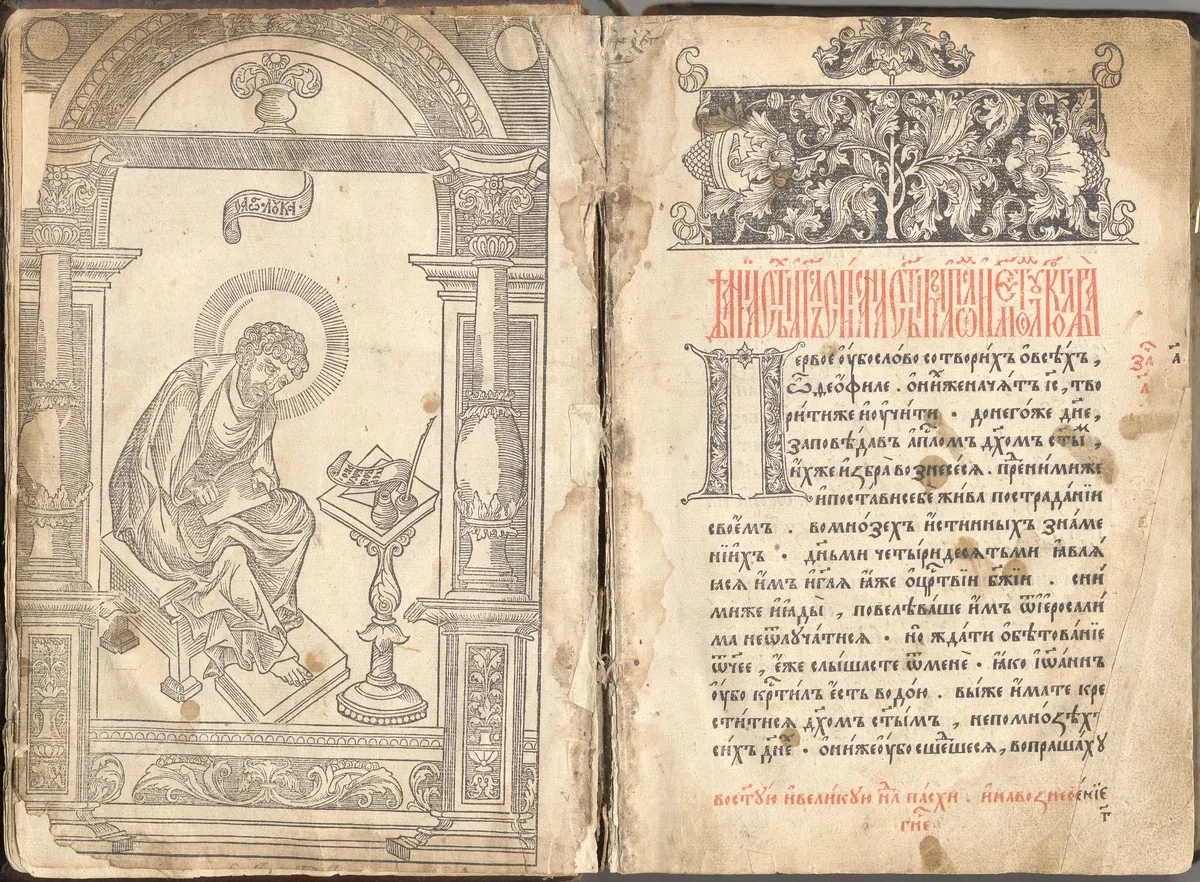 ОАГ҃І · ЛУКА ·
Первое оу҆бо слово сотворихъ ѻ҆ всѣхъ ,
ѽ де҆о҆филе . ѻ҆ ниⷯже начѧтъ і҆с҃ , тво
ри́тиже и҆ оу҆чи́ти · до него́же дн҃е ,
заповѣ́давъ а҆пⷭ҇лѡмъ дх҃омъ ст҃ыⷨ ,
и҆́хже и҆збра̀ вознесе́сѧ . преⷣ ни́миже
и҆ поста́ви себе жи́ва по страда́нїи
свое́мъ . во мно́зехъ и҆́стинныхъ зна́ме
нїихъ · дн҃ьми четы́ридесѧтьми ꙗ҆влѧ́
ꙗсѧ и҆̀мъ и҆ гл҃ѧ ꙗ҆̀же ѻ҆ црⷭ҇твїи бж҃їи . сни́
миже и҆ ꙗ҆ды̀ , повелѣва́ше и҆̀мъ ѿ і҆еросали́
ма не ѿлуча́тисѧ · но жда́ти ѻ҆бѣтова́нїе
ѿч҃ее , е҆́же слы́шасте ѿ менѐ · ꙗ҆́ко і҆ѡ҆а́ннъ
оу҆́бо крⷭ҇ти́лъ е҆́сть водо́ю . вы́же и҆́мате кре
сти́тисѧ дх҃омъ ст҃ы́мъ , не по мно́зѣхъ
си́хъ дн҃еⷯ · ѻ҆ни́же оу҆́бо сше́дшесѧ , вопраша́ху
во ст҃у́ю и҆ вели́кую нⷣ҇лю па́схи . и҆ на вознесе́нїе
гн҃е